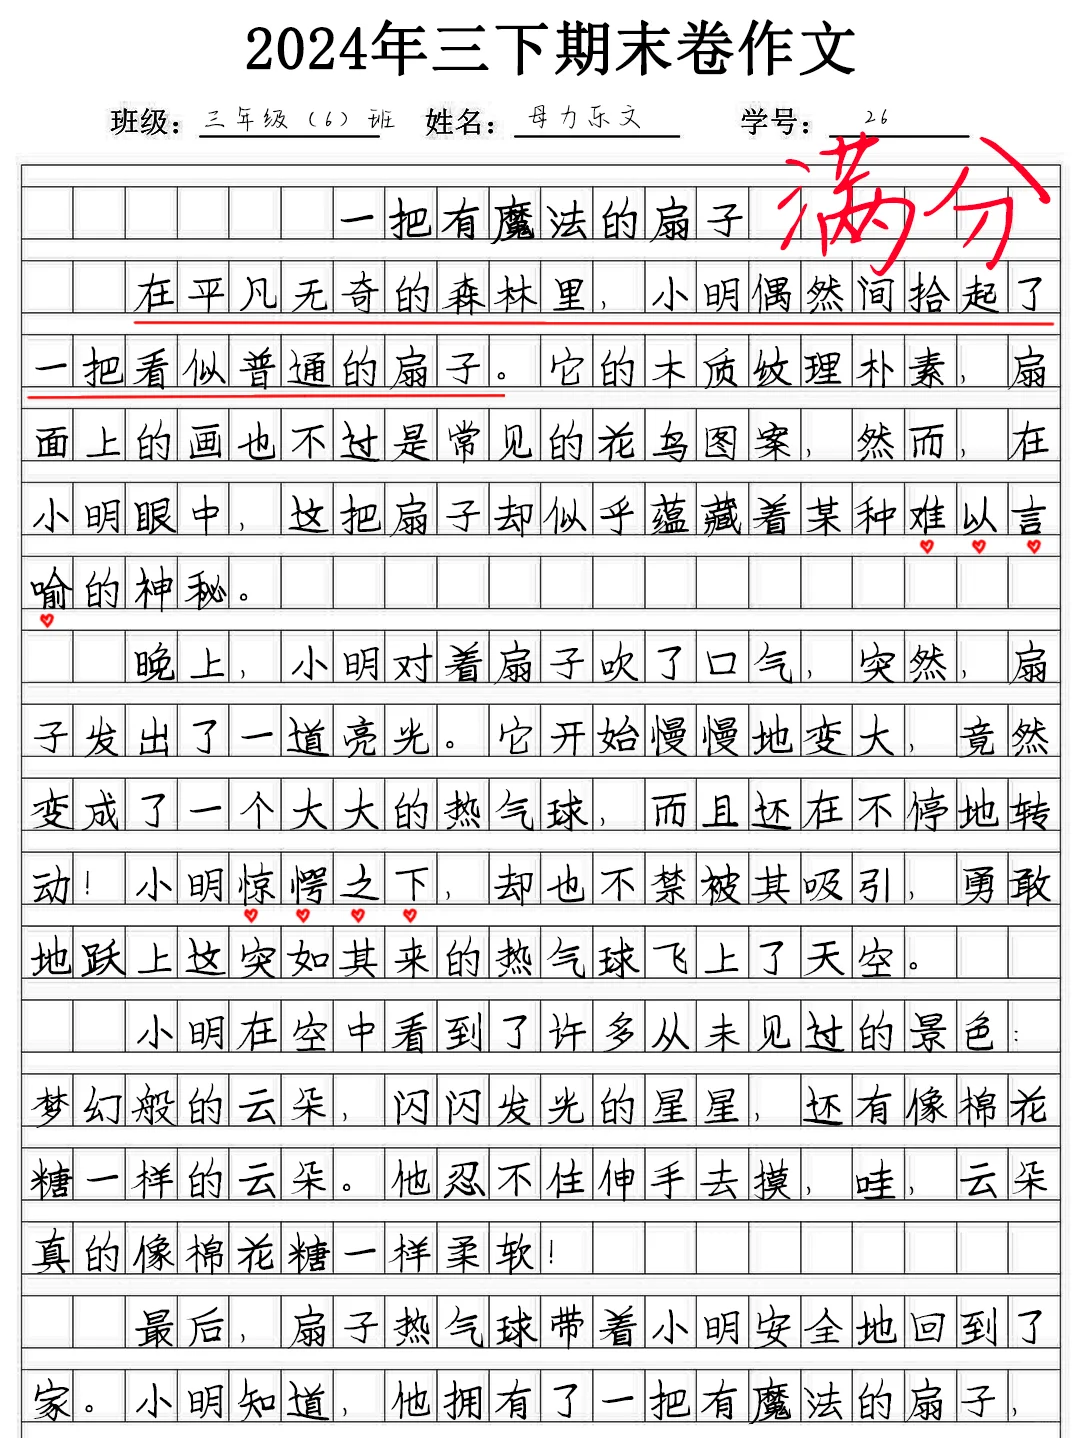 2024年三下期末卷作文
班级：三年级（6）班 姓名：母力乐文 学号：26
满分
一把有魔法的扇子
在平凡无奇的森林里，小明偶然间拾起了
一把看似普通的扇子。它的木质纹理朴素，扇
面上的画也不过是常见的花鸟图案，然而，在
小明眼中，这把扇子却似乎蕴藏着某种难以言
喻的神秘。
晚上，小明对着扇子吹了口气，突然，扇
子发出了一道亮光。它开始慢慢地变大，竟然
变成了一个大大的热气球，而且还在不停地转
动！小明惊愕之下，却也不禁被其吸引，勇敢
地跃上这突如其来的热气球飞上了天空。
小明在空中看到了许多从未见过的景色：
梦幻般的云朵，闪闪发光的星星，还有像棉花
糖一样的云朵。他忍不住伸手去摸，哇，云朵
真的像棉花糖一样柔软！
最后，扇子热气球带着小明安全地回到了
家。小明知道，他拥有了一把有魔法的扇子，